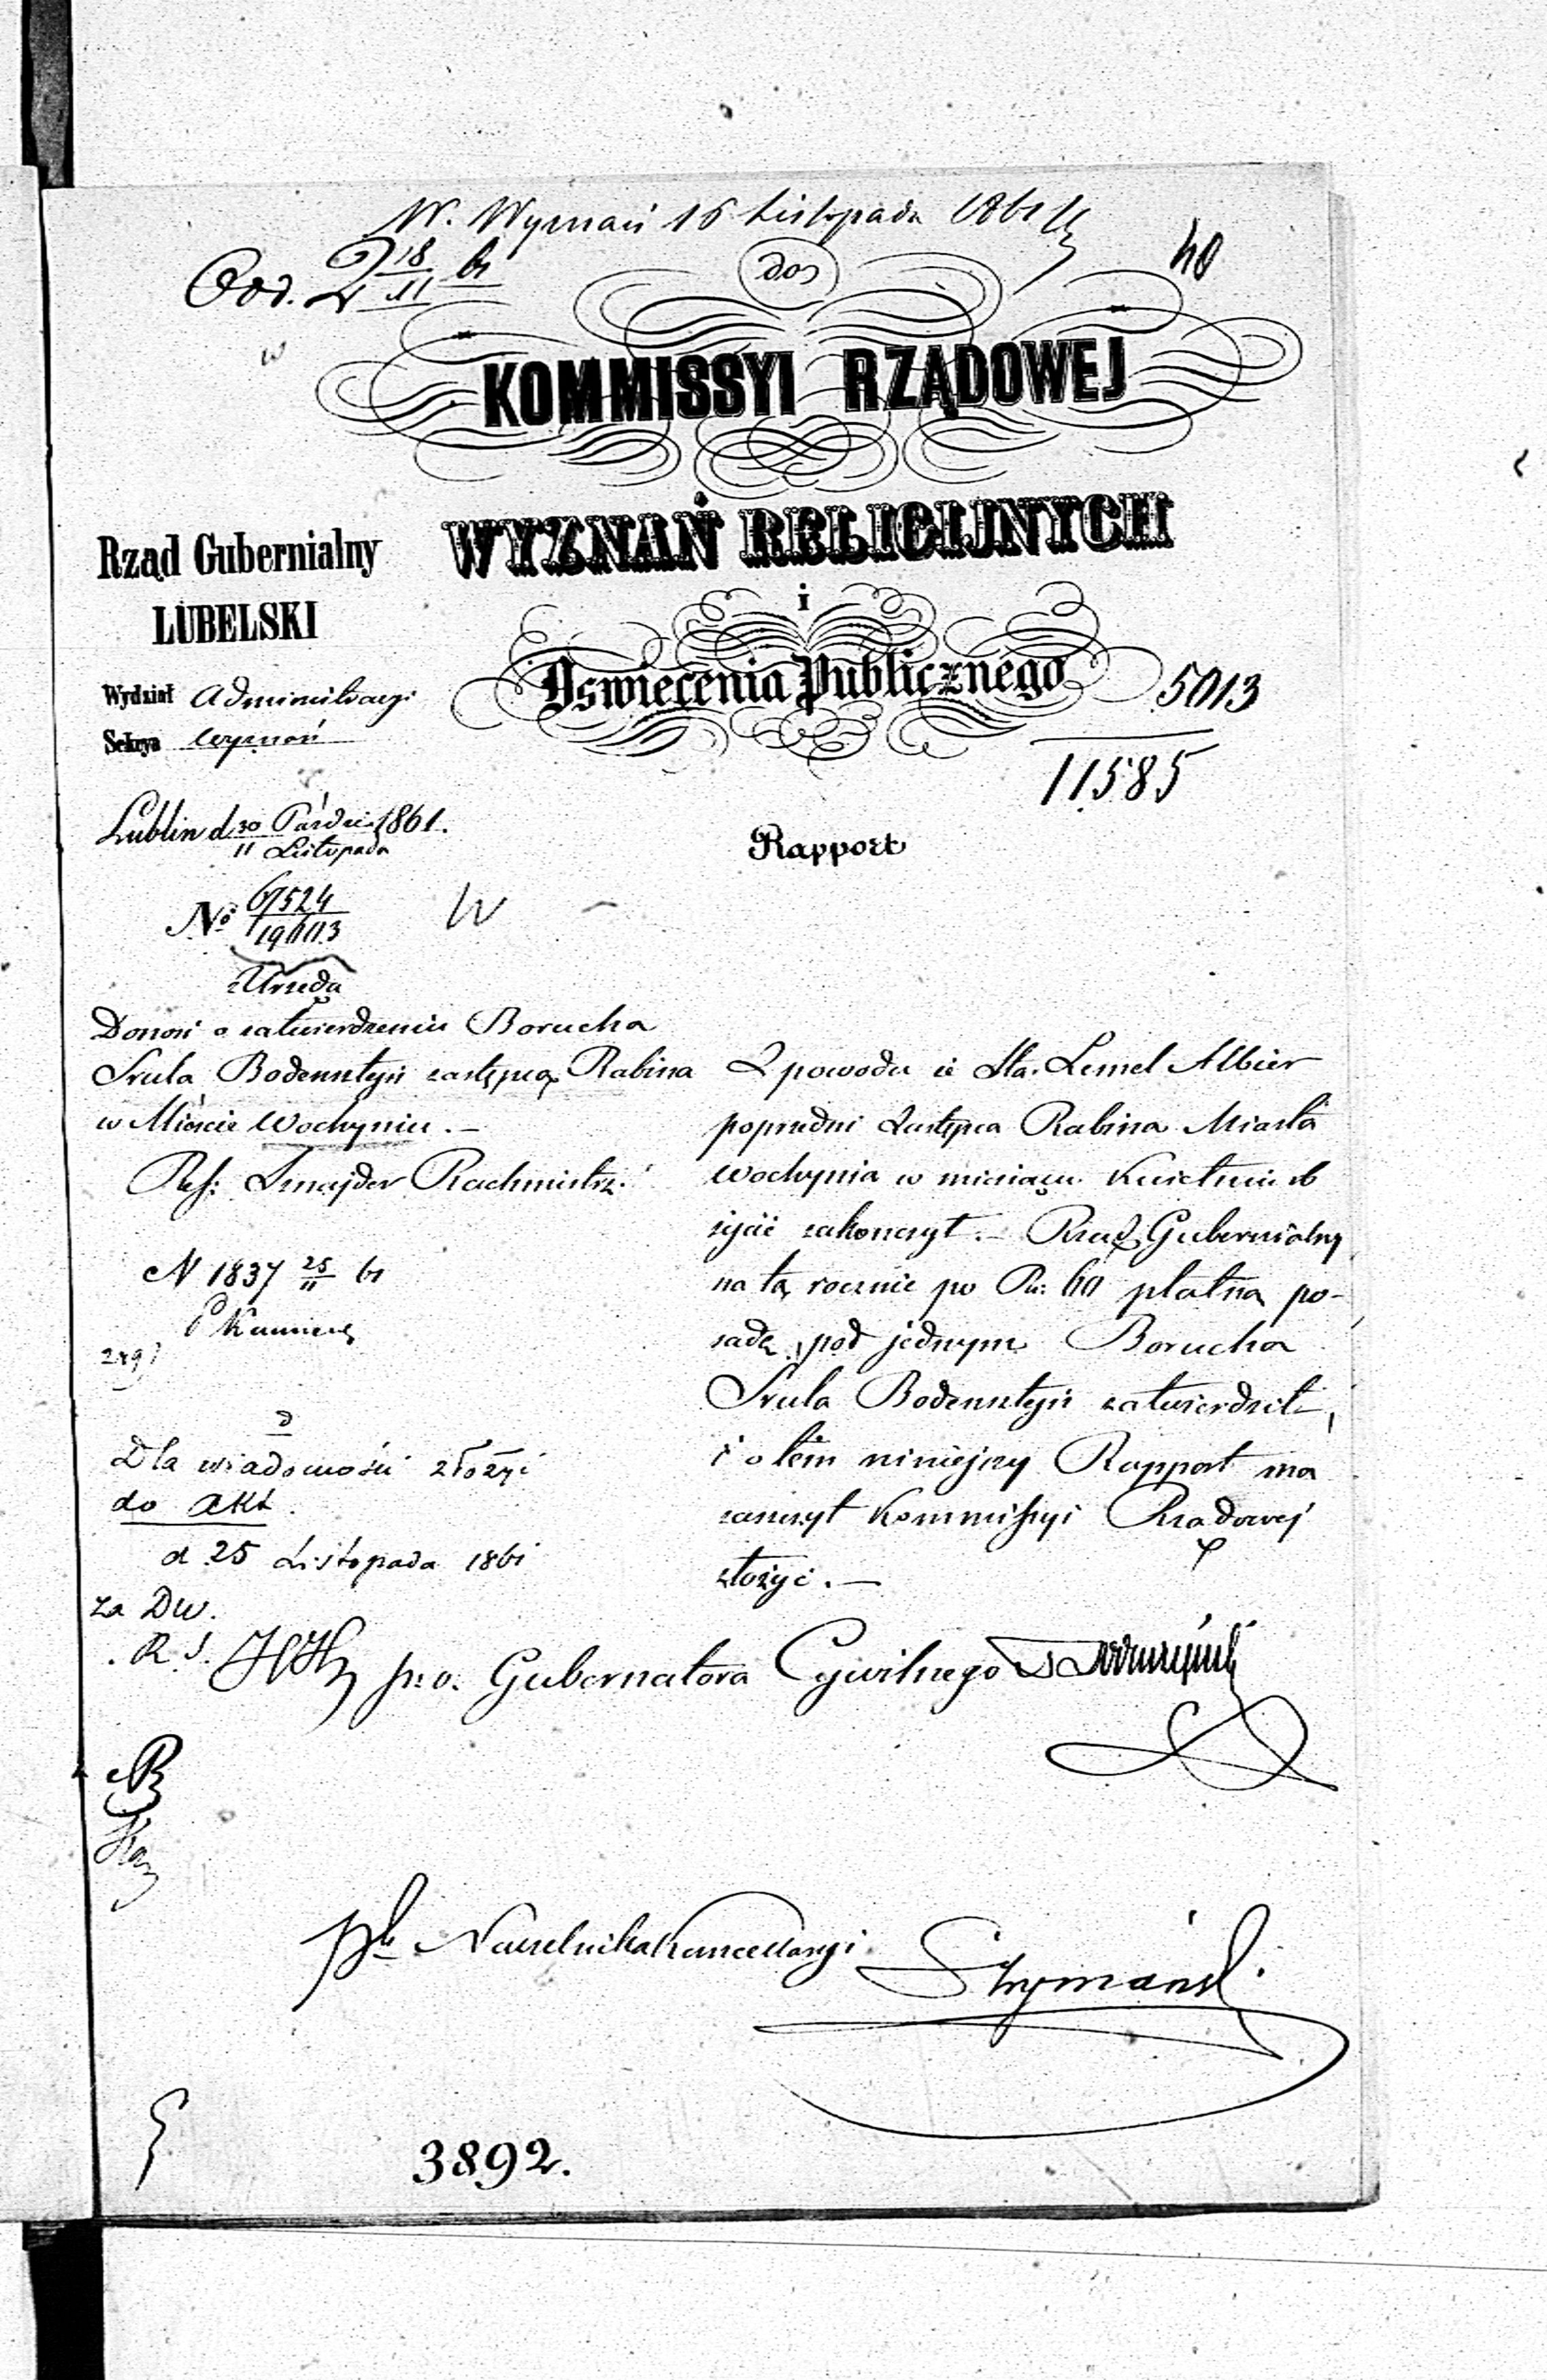 W. Wyznań 16 Listopada 1861
40
Od. 18/11 61
do
KOMMISSYI RZĄDOWEJ
WYZNAŃ RELIGIJNYCH
i
Oswiecenia Publicznego
5013
11585
Rząd Gubernialny
LUBELSKI
Wydział Administracyi
Sekcya Wyznań
Lublin d 30 Paźdz. 1861.
11 Listopada
Rapport
No 67524
19603
z Urzędu
Donosi o zatwierdzeniu Borucha
Srula Bodensztejn zastępcą Rabina
w Mieście Wochyniu. –
Ref: Sznajder Rachmistrz
N 1837 25/11 61
Dla wiadomości złożyć
do akt.
d 25 Listopada 1861
za Dw.
R. S.
Z powodu że Lemel Albier
poprzedni Zastępca Rabina Miasta
Wochynia w miesiącu Kwietniu rb
życie zakonczył. – Rząd Gubernialny
na tą rocznie po Rs: 60 płatną po-
sadę, pod jednym Borucha
Srula Bodensztejn zatwierdził,
i o tem niniejszy Rapport ma
zaszczyt Kommissyi Rządowej
złożyć. –
p. o. Gubernatora Cywilnego
Naczelnika Kancellaryi Szymański
3892.